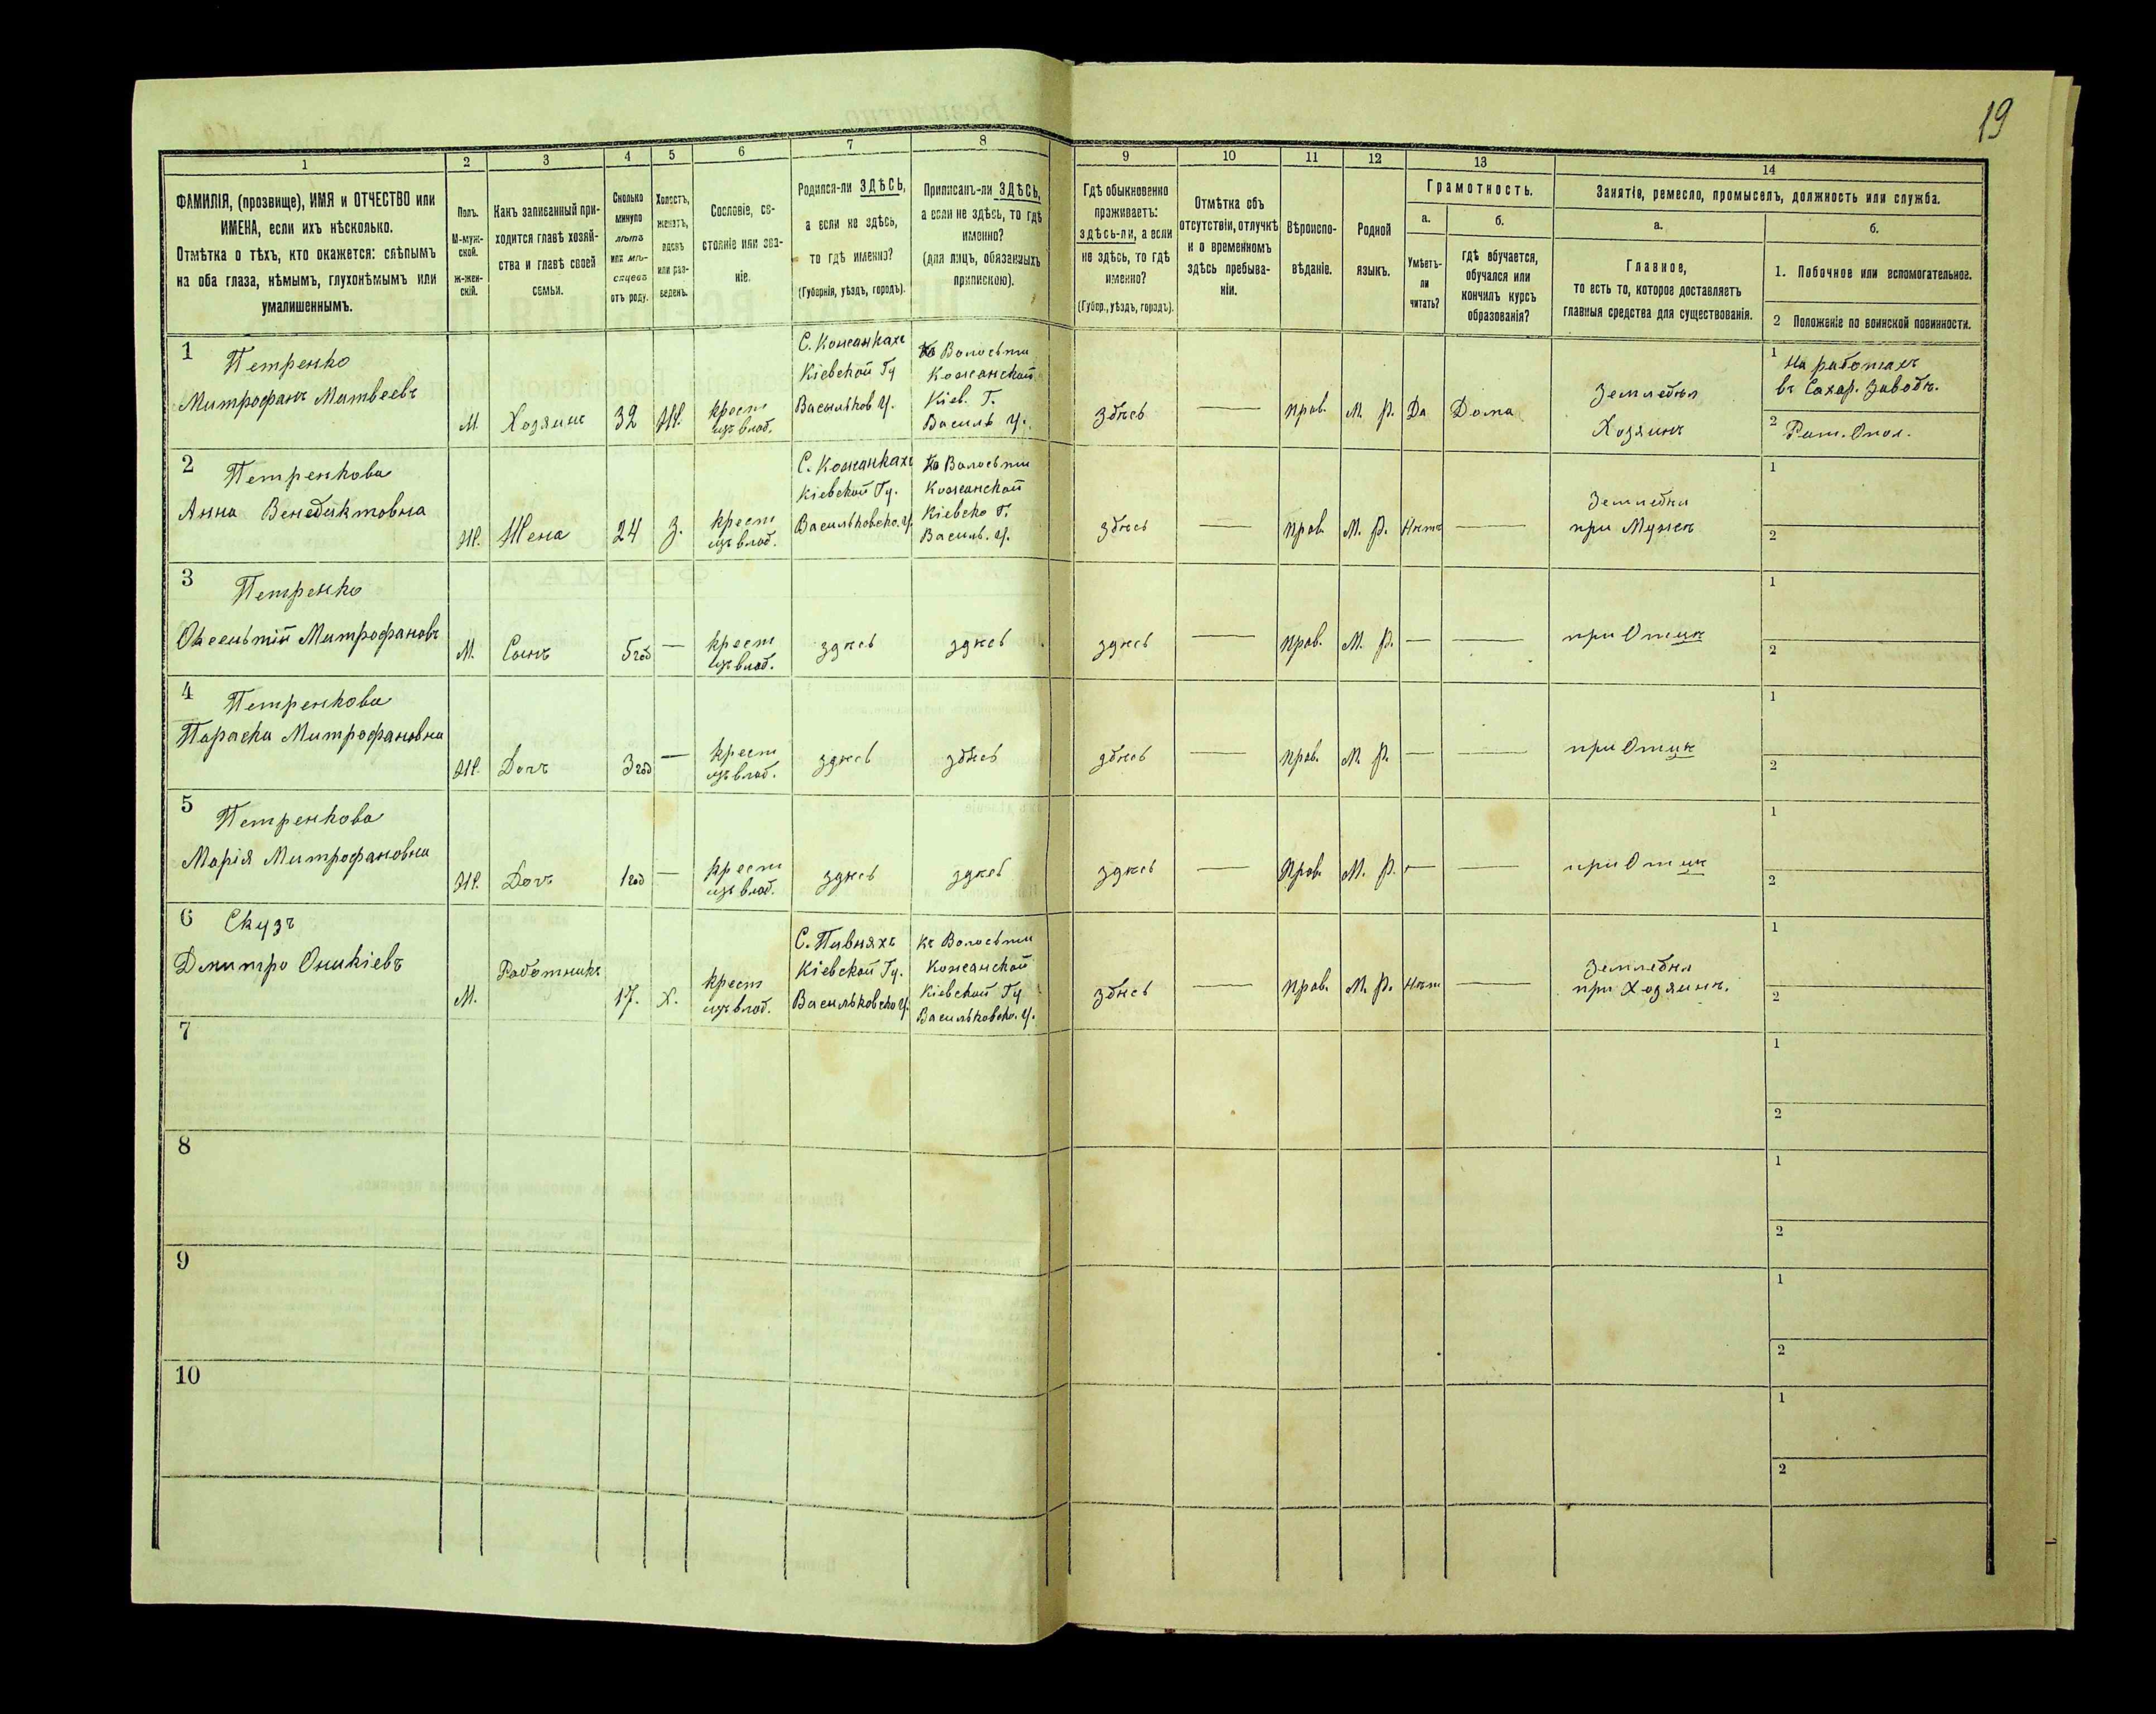 19
1 2 3 4 5 6 7 8 9 10 11 12 13 14
ФАМИЛІЯ, (прозвище), ИМЯ и ОТЧЕСТВО или
ИМЕНА, если ихъ нѣсколько.
Отмѣтка о тѣхъ, кто окажется: слѣпымъ
на оба глаза, нѣмымъ, глухонѣмымъ или
умалишеннымъ.
Полъ.
М-муж-
ской.
ж-жен-
скій.
Какъ записанный при-
ходится главѣ хозяй-
ства и главѣ своей
семьи.
Сколько
минуло
лѣтъ
или мѣ-
сяцевъ
отъ роду.
Холостъ,
женатъ,
вдовъ
или раз-
веденъ.
Сословіе, со-
стояніе или зва-
ніе.
Родился-ли ЗДѢСЬ,
а если не здѣсь,
то гдѣ именно?
(Губернія, уѣздъ, городъ).
Приписанъ-ли ЗДѢСЬ,
а если не здѣсь, то гдѣ
именно?
(для лицъ, обязанныхъ
припискою).
Гдѣ обыкновенно
проживаетъ:
здѣсь-ли, а если
не здѣсь, то гдѣ
именно?
(Губер., уѣздъ, городъ).
Отмѣтка объ
отсутствіи, отлучкѣ
и о временномъ
здѣсь пребыва-
ніи.
Вѣроиспо-
вѣданіе.
Родной
языкъ.
Грамотность.
а.
Умѣетъ-
ли
читать?
б.
Гдѣ обучается,
обучался или
кончилъ курсъ
образованія?
Занятія, ремесло, промыселъ, должность или служба.
а.
Главное,
то есть то, которое доставляетъ
главныя средства для существованія.
б.
1. Побочное или вспомогательное.
2 Положеніе по воинской повинности.
1 Петренко
Митрофанъ Матвеевъ
М.
Хозяинъ
32
Ж.
крест
изъ влад.
С. Кожанкахъ
Кіевской Гу
Васильков. У.
Волосьти
Кожанской
Кіев. Г.
Василь У.
здѣсь
—
прав.
М. Р.
Да
Дома
Земледѣл
Хозяинъ
1 На работахъ
въ Сахар. Заводѣ.
2 Рат. Опол.
2 Петренкова
Анна Венедиктовна
Ж.
Жена
24
З.
крест
изъ влад.
С. Кожанкахъ
Кіевской Гу.
Васильковско. У.
Волосьти
Кожанской
Кіевско Г.
Василь. У.
здѣсь
—
прав.
М. Р.
Нѣтъ
—
Земледѣл
при Мужѣ
1
2
3 Петренко
Митрофановъ
М.
Сынъ
5 год
—
крест
изъ влад.
здѣсь
здѣсь
здѣсь
—
прав.
М. Р.
—
—
при Отцѣ
1
2
4 Петренкова
Параска Митрофановна
Ж.
Дочь
3 год
—
крест
изъ влад.
здѣсь
здѣсь
здѣсь
—
прав.
М. Р.
—
—
при Отцѣ
1
2
5 Петренкова
Марія Митрофановна
Ж.
Дочь
1 год
—
крест
изъ влад.
здѣсь
здѣсь
здѣсь
—
Прав.
М. Р.
—
—
при Отцѣ
1
2
6 Скузъ
Дмитро Оникіевъ
М.
Работникъ
17.
Х.
крест
изъ влад.
С. Пивняхъ
Кіевской Гу.
Васильковско У.
къ Волосьти
Кожанской
Кіевской Гу
Васильковско. У.
здѣсь
—
прав.
М. Р.
Нѣт
—
Земледѣл
при Хозяинѣ.
1
2
7
1
2
8
1
2
9
1
2
10
1
2